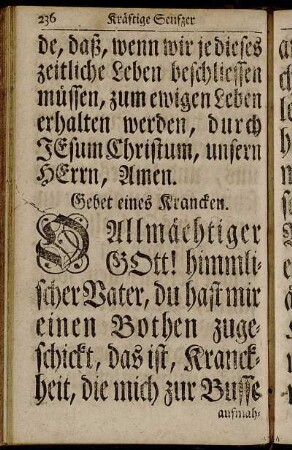 236 Kräftige Seufzer
de, daß, wenn wir je dieses
zeitliche Leben beschliessen
müssen, zum ewigen Leben
erhalten werden, durch
JEsum Christum, unsern
HErrn, Amen.
Gebet eines Krancken.
O Allmächtiger
GOtt! himmli-
scher Vater, du hast mir
einen Bothen zuge-
schickt, das ist, Kranck-
heit, die mich zur Busse
aufmah-